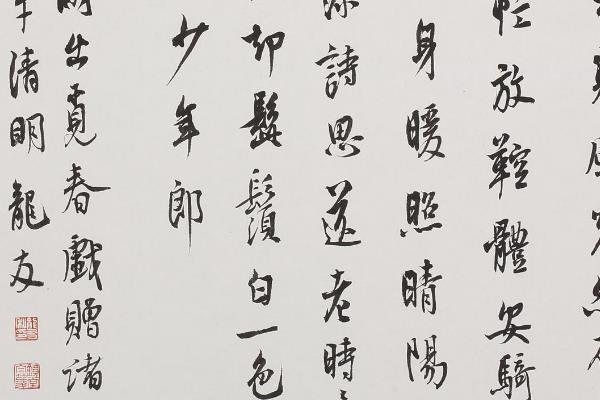 忙放鞚體安騎
身暖照晴陽
添詩思送老時
却髭鬚白一色
少年郎
出覓春戲贈諸
清明龍友